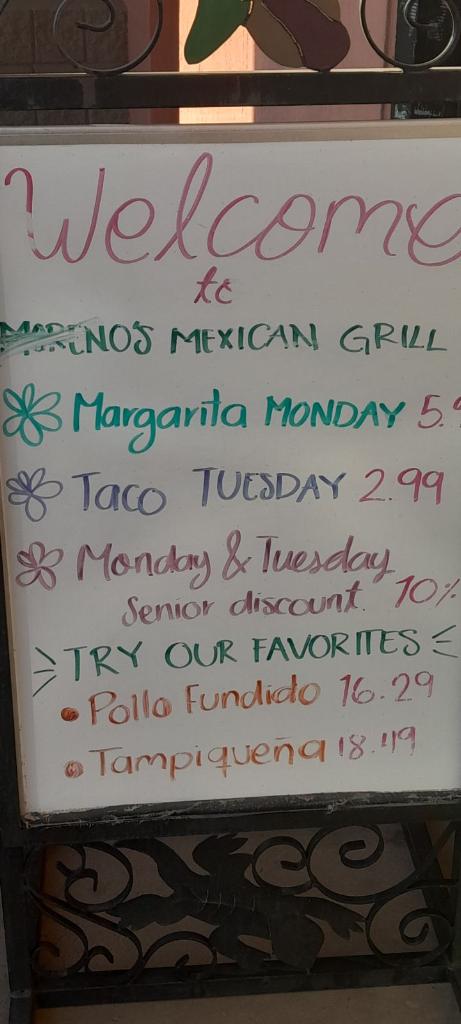 Welcome
to
MORENO'S MEXICAN GRILL
Margarita MONDAY
Taco TUESDAY 2.99
Monday & Tuesday
Senior discount. 10%
TRY OUR FAVORITES
• Pollo Fundido 16.29
• Tampiqueña 18.49